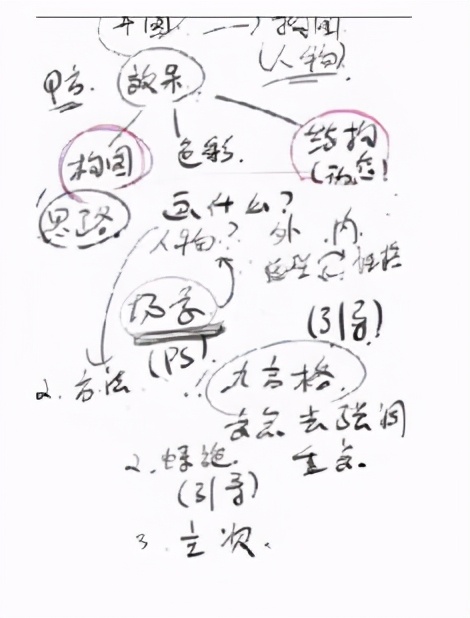 构图
(人物)
甲方. 效果
构图 色彩. 结构
(动态!)
思路 画什么?
人物? 外 内
性格
场景
(引导)
(PS)
2. 方法 九宫格.
去强调
2. 螺旋.
(引导)
3. 主次.